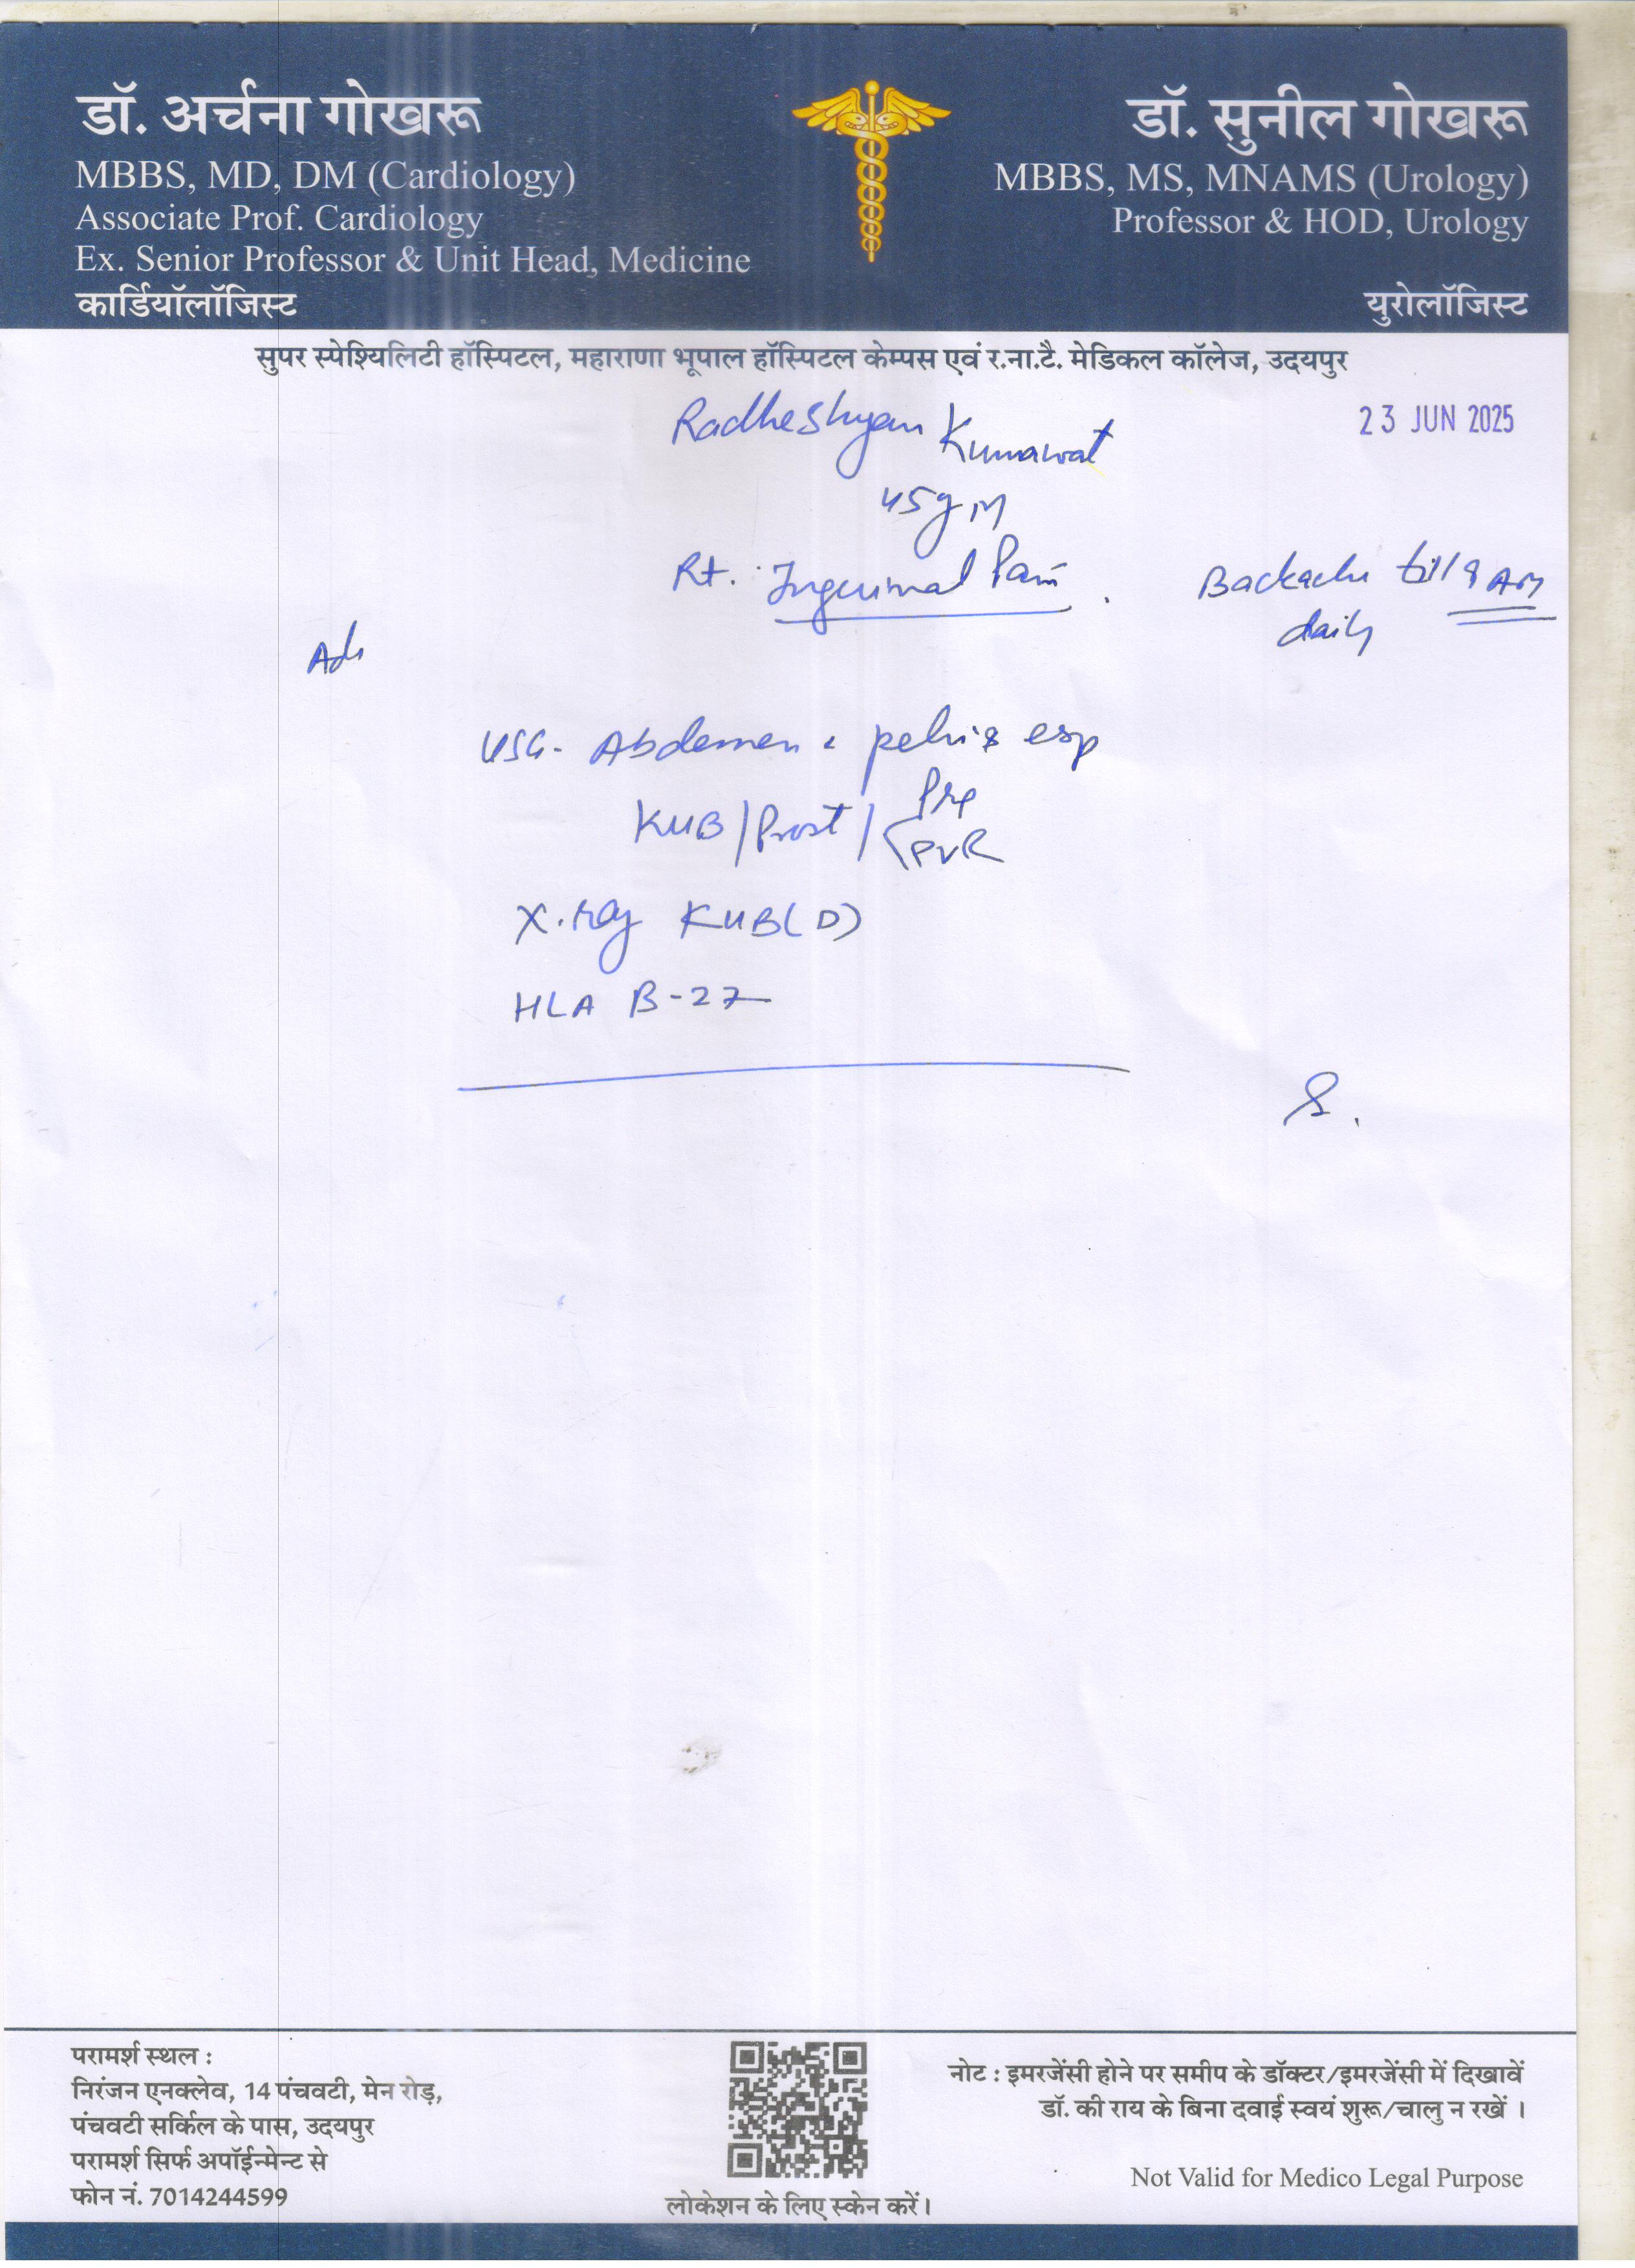 डॉ. अर्चना गोखरू
MBBS, MD, DM (Cardiology)
Associate Prof. Cardiology
Ex. Senior Professor & Unit Head, Medicine
कार्डियॉलॉजिस्ट
डॉ. सुनील गोखरू
MBBS, MS, MNAMS (Urology)
Professor & HOD, Urology
युरोलॉजिस्ट
सुपर स्पेश्यिलिटी हॉस्पिटल, महाराणा भूपाल हॉस्पिटल केम्पस एवं र.ना.टै. मेडिकल कॉलेज, उदयपुर
23 JUN 2025
Radheshyam Kumawat
45y M
Rt. Inguinal Pain. Backache till 9 AM
daily
Adv
USG- Abdomen & pelvis esp
KUB/Prost/ Pre
PVR
X-ray KUB(D)
HLA B-27
S.
परामर्श स्थल :
निरंजन एनक्लेव, 14 पंचवटी, मेन रोड़,
पंचवटी सर्किल के पास, उदयपुर
परामर्श सिर्फ अपॉईन्मेन्ट से
फोन नं. 7014244599
लोकेशन के लिए स्केन करें।
नोट : इमरजेंसी होने पर समीप के डॉक्टर/इमरजेंसी में दिखावें
डॉ. की राय के बिना दवाई स्वयं शुरू/चालु न रखें ।
Not Valid for Medico Legal Purpose